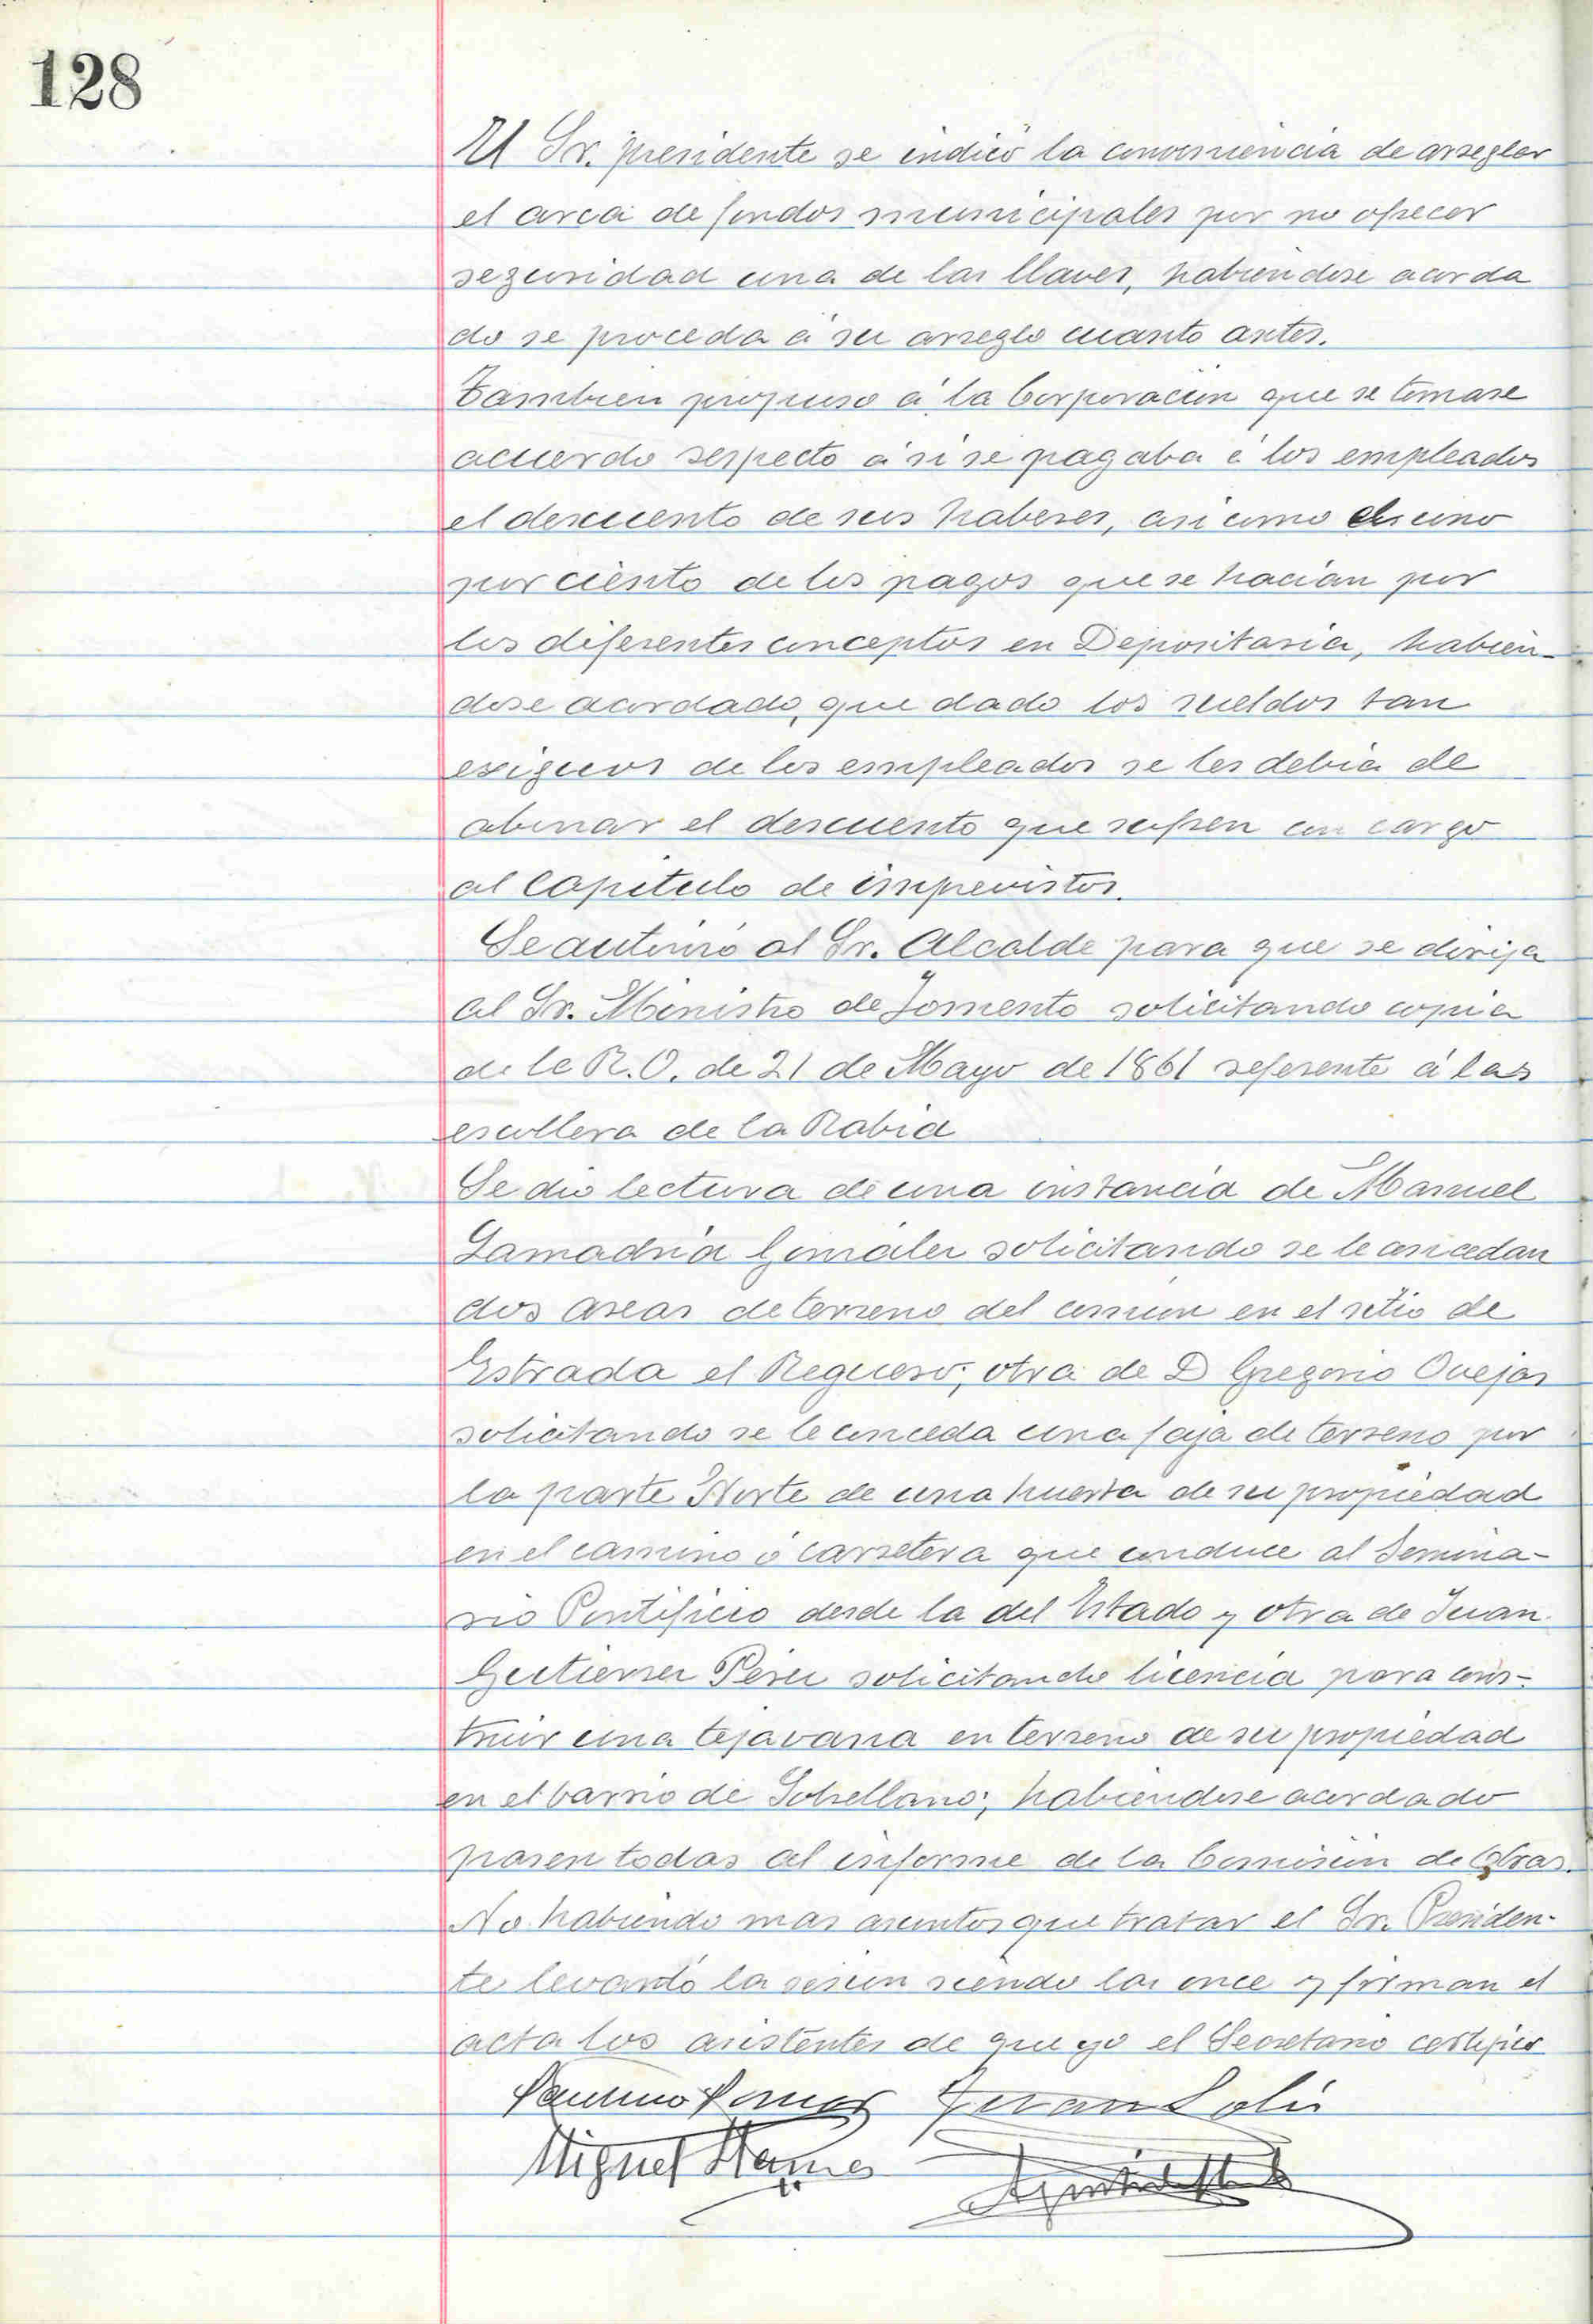 128
El Sr. presidente se indicó la conveniencia de arreglar
el arca de fondos municipales por no ofrecer
seguridad una de las llaves, habiendose acorda
do se proceda á su arreglo cuanto antes.
Tambien propuso á la Corporación que se tomase
acuerdo respecto á si se pagaba á los empleados
el descuento de sus haberes, asi como el uno
por ciento de los pagos que se hacian por
los diferentes conceptos en Depositaria, habien-
dose acordado, que dado los sueldos tan
exiguos de los empleados se les debia de
abonar el descuento que sufren con cargo
al capitulo de imprevistos.
Se autorizó al Sr. Alcalde para que se dirija
al Sr. Ministro de Fomento solicitando copia
de la R. O. de 21 de Mayo de 1861 referente á las
escollera de la Rabia
Se dio lectura de una instancia de Manuel
Lamadrid González solicitando se le concedan
dos areas de terreno del comun en el sitio de
Estrada el Reguero; otra de D Gregorio Ovejas
solicitando se le conceda una faja de terreno por
la parte Norte de una huerta de su propiedad
en el camino ó carretera que conduce al Semina-
rio Pontificio desde la del Estado y otra de Juan
Gutierrez Perez solicitando licencia para cons-
truir una tejavana en terreno de su propiedad
en el barrio de Sobrellano; habiendose acordado
pasen todas al informe de la Comisión de Obras.
No habiendo mas asuntos que tratar el Sr. Presiden-
te levantó la sesion siendo las once y firman el
acta los asistentes de que yo el Secretario certifico
Juan Solis
Miguel